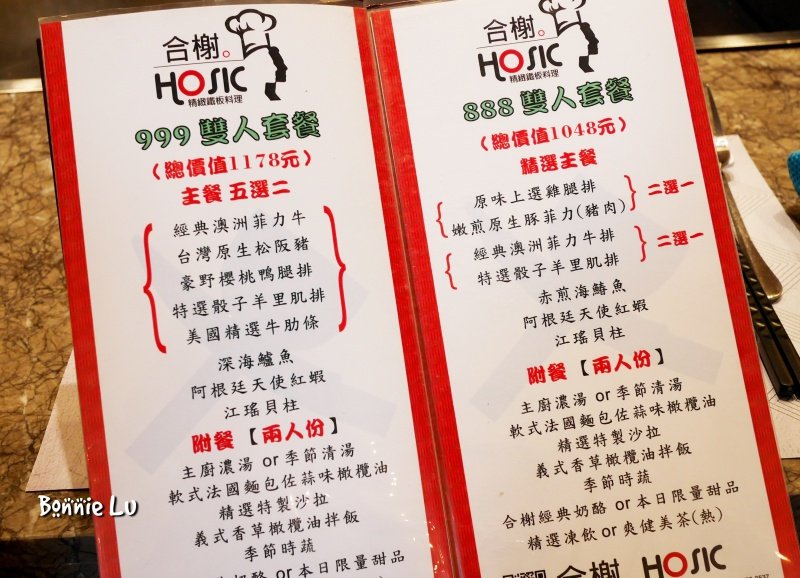 合榭。
HOSIC
精緻鐵板料理
999 雙人套餐
(總價值1178元)
主餐 五選二
經典澳洲菲力牛
台灣原生松阪豬
豪野櫻桃鴨腿排
特選骰子羊里肌排
美國精選牛肋條
深海鱸魚
阿根廷天使紅蝦
江瑤貝柱
附餐【兩人份】
主廚濃湯 or 季節清湯
軟式法國麵包佐蒜味橄欖油
精選特製沙拉
義式香草橄欖油拌飯
季節時蔬
奶酪 or 本日限量甜品
合榭。
HOSIC
精緻鐵板料理
888 雙人套餐
(總價值1048元)
精選主餐
原味上選雞腿排
嫩煎原生豚菲力(豬肉)
二選一
經典澳洲菲力牛排
特選骰子羊里肌排
二選一
赤煎海鱺魚
阿根廷天使紅蝦
江瑤貝柱
附餐【兩人份】
主廚濃湯 or 季節清湯
軟式法國麵包佐蒜味橄欖油
精選特製沙拉
義式香草橄欖油拌飯
季節時蔬
合榭經典奶酪 or 本日限量甜品
精選凍飲 or 爽健美茶(熱)
合榭 HOSIC
Bonnie Lu